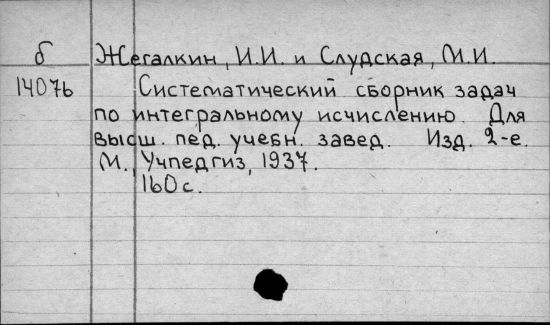 б Жегалкин, И.И. и Слудская, М.И.
14076 Систематический сборник задач
по интегральному исчислению. Для
высш. пед. учебн. завед. Изд. 2-е.
М., Учпедгиз, 1937.
160 с.